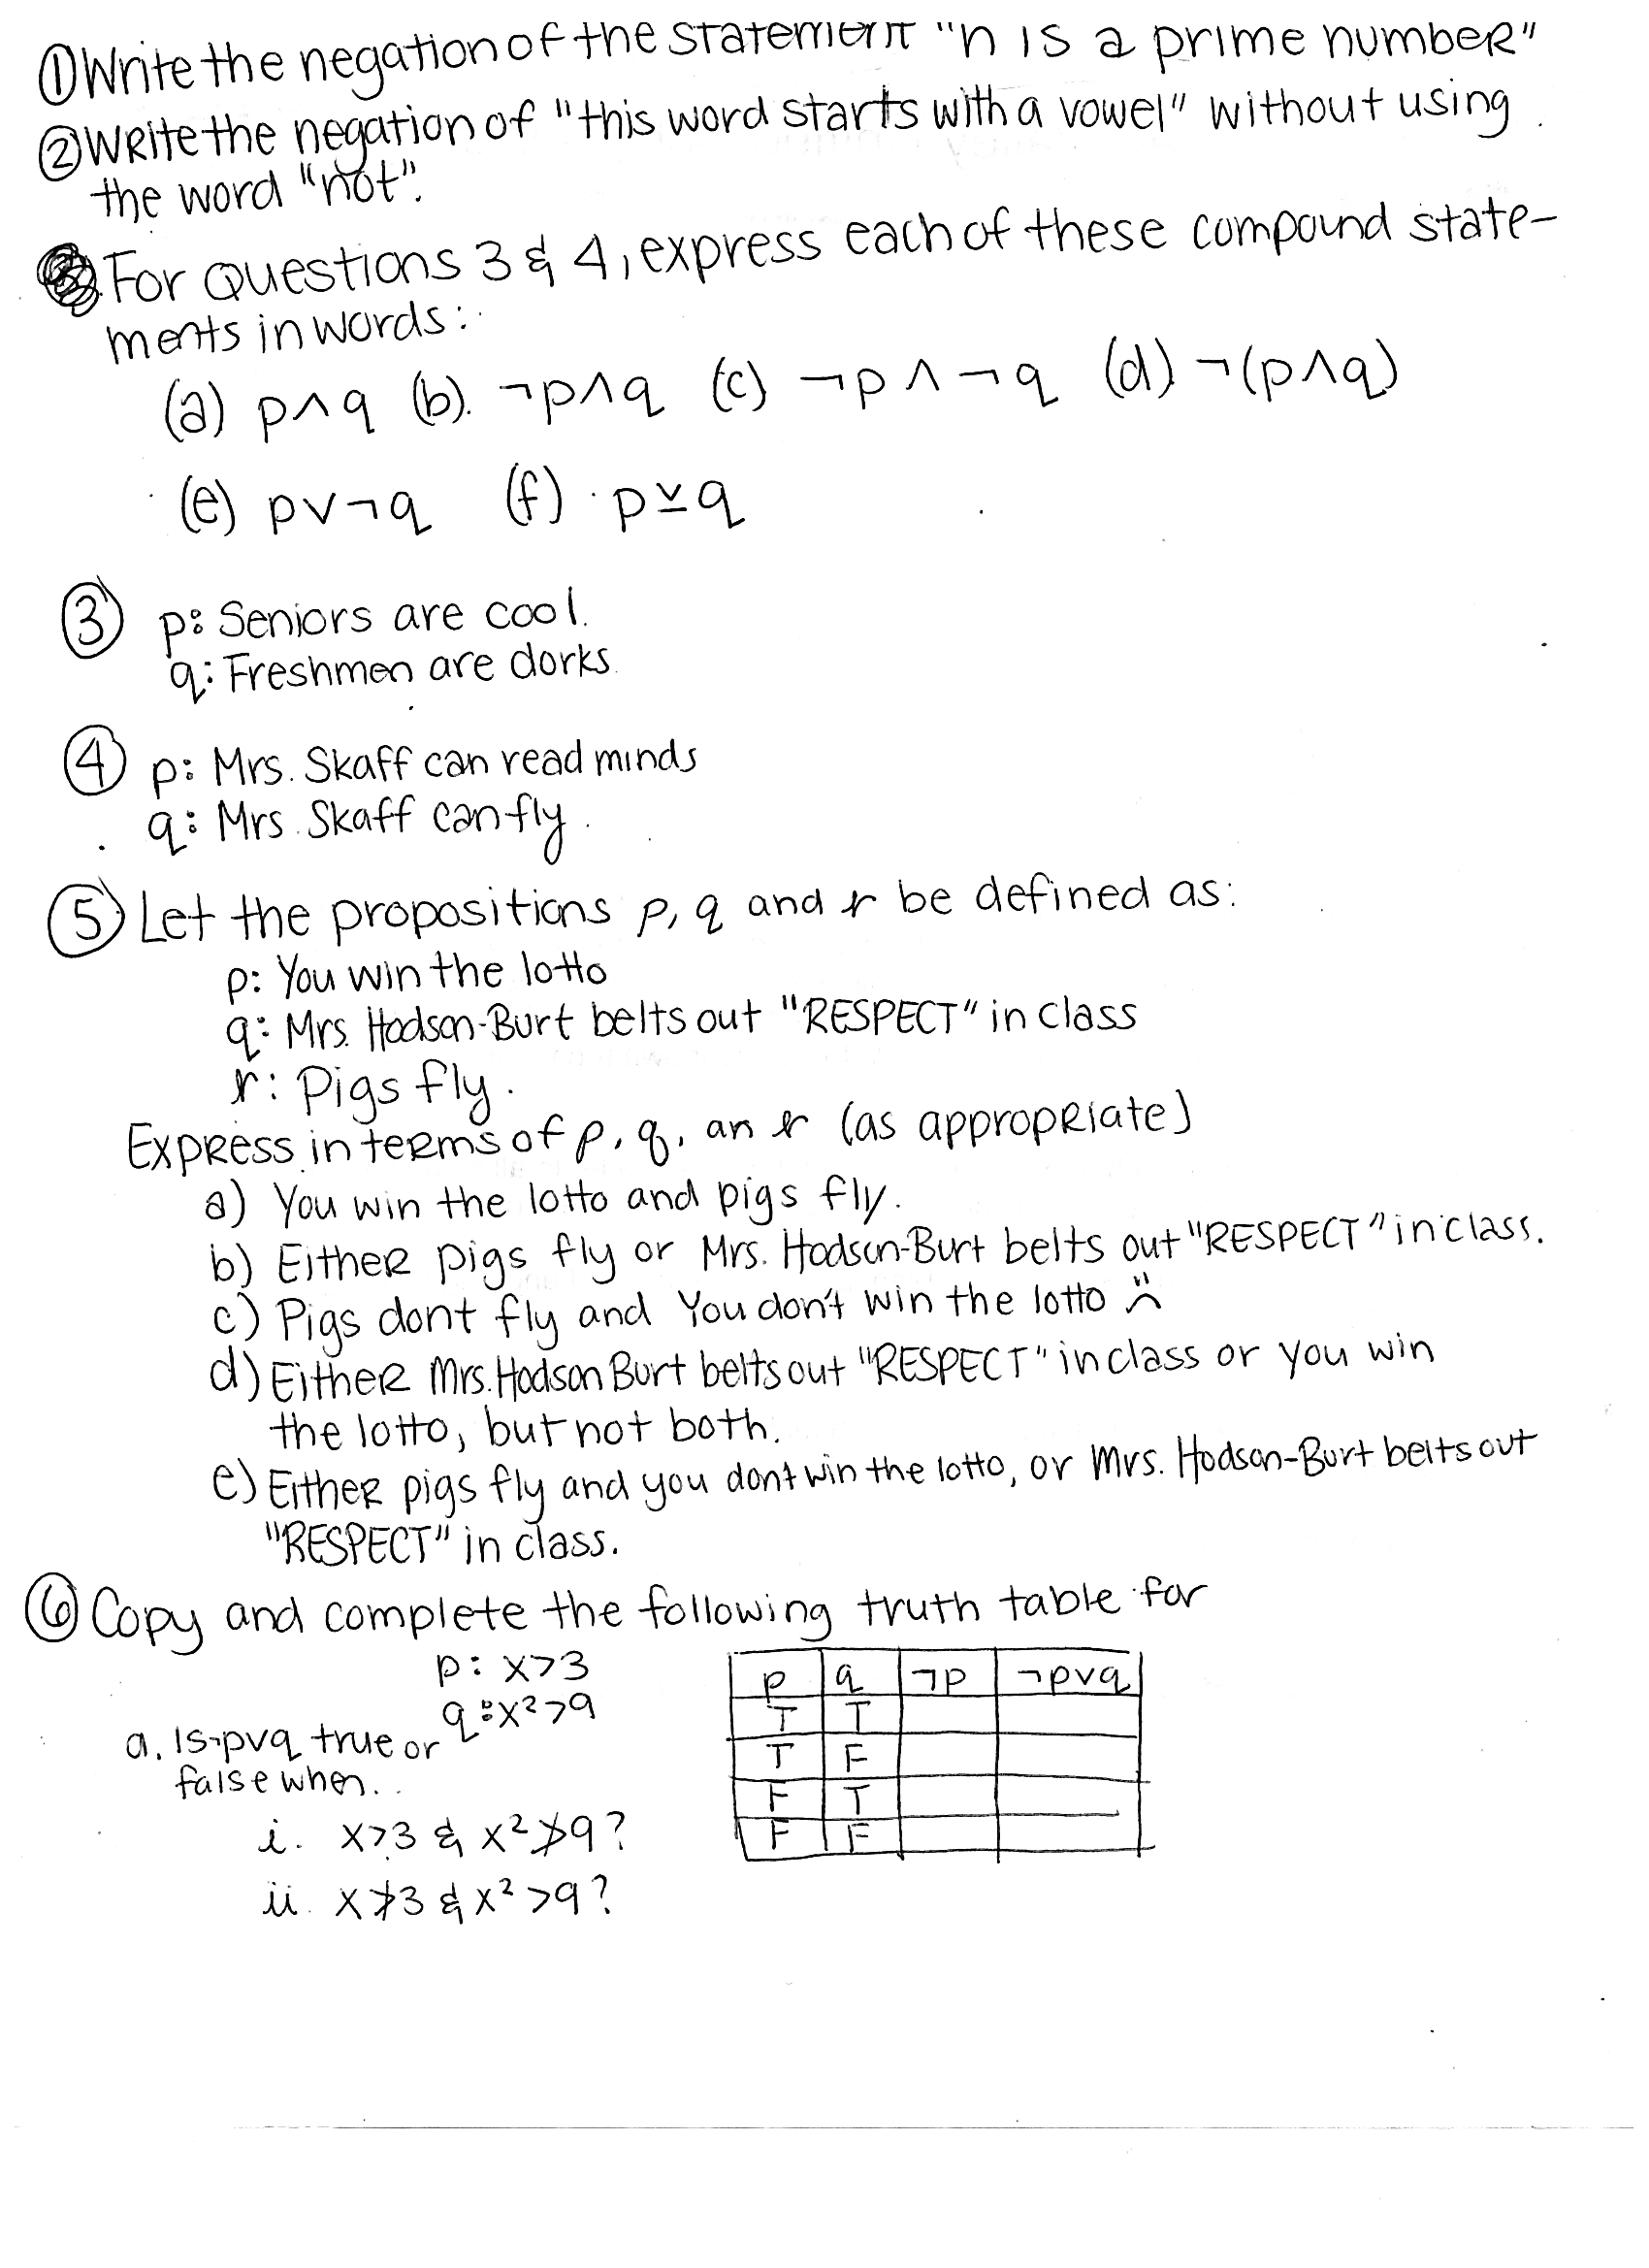 ① Write the negation of the statement "n is a prime number"
② Write the negation of "this word starts with a vowel" without using
the word "not".
For Questions 3 & 4, express each of these compound state-
ments in words:
(a) p∧q (b). ¬p∧q (c) ¬p∧¬q (d) ¬(p∧q)
(e) p∨¬q (f) p⊻q
③ p: Seniors are cool.
q: Freshmen are dorks.
④ p: Mrs. Skaff can read minds
q: Mrs. Skaff can fly.
⑤ Let the propositions p, q and r be defined as:
p: You win the lotto
q: Mrs. Hodson-Burt belts out "RESPECT" in class
r: Pigs fly.
Express in terms of p, q, an r (as appropriate)
a) You win the lotto and pigs fly.
b) Either pigs fly or Mrs. Hodson-Burt belts out "RESPECT" in class.
c) Pigs dont fly and You don't win the lotto ¨⌢
d) Either Mrs. Hodson Burt belts out "RESPECT" in class or you win
the lotto, but not both.
e) Either pigs fly and you dont win the lotto, or Mrs. Hodson-Burt belts out
"RESPECT" in class.
⑥ Copy and complete the following truth table for
p: x>3
q: x²>9
a. Is ¬p∨q true or
false when..
i. x>3 & x²≯9?
ii. x≯3 & x²>9?
p q ¬p ¬p∨q
T T
T F
F T
F F